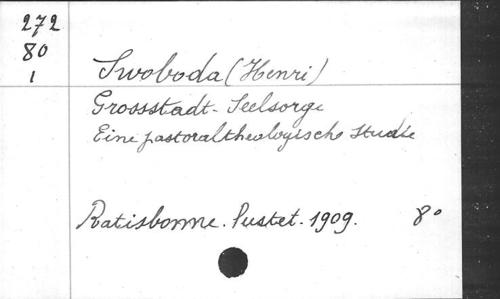 272
80
1
Swoboda (Henri)
Grossstadt-Seelsorge
Eine pastoraltheologische Studie
Ratisbonne. Pustet. 1909. 8°